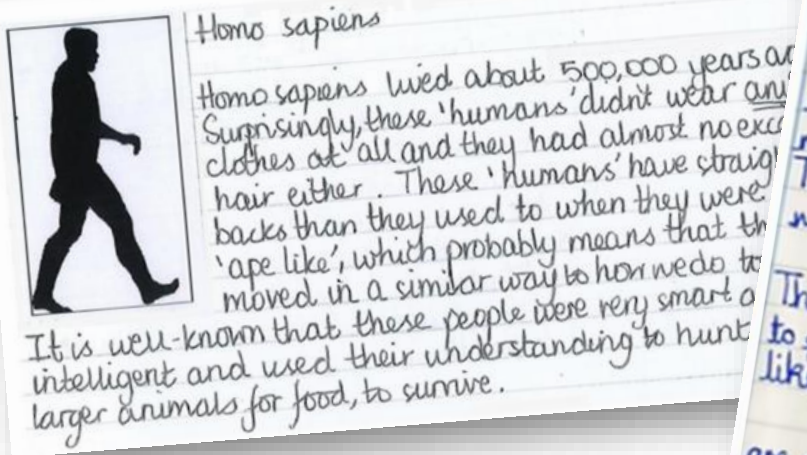 Homo sapiens
Homo sapiens lived about 500,000 years
Surprisingly, these 'humans' didn't wear
clothes at all and they had almost no
hair either. These 'humans' have
backs than they used to when they were
'ape like', which probably means that
moved in a similar way to how we do
It is well-known that these people were very smart
intelligent and used their understanding to hunt
larger animals for food, to survive.
to